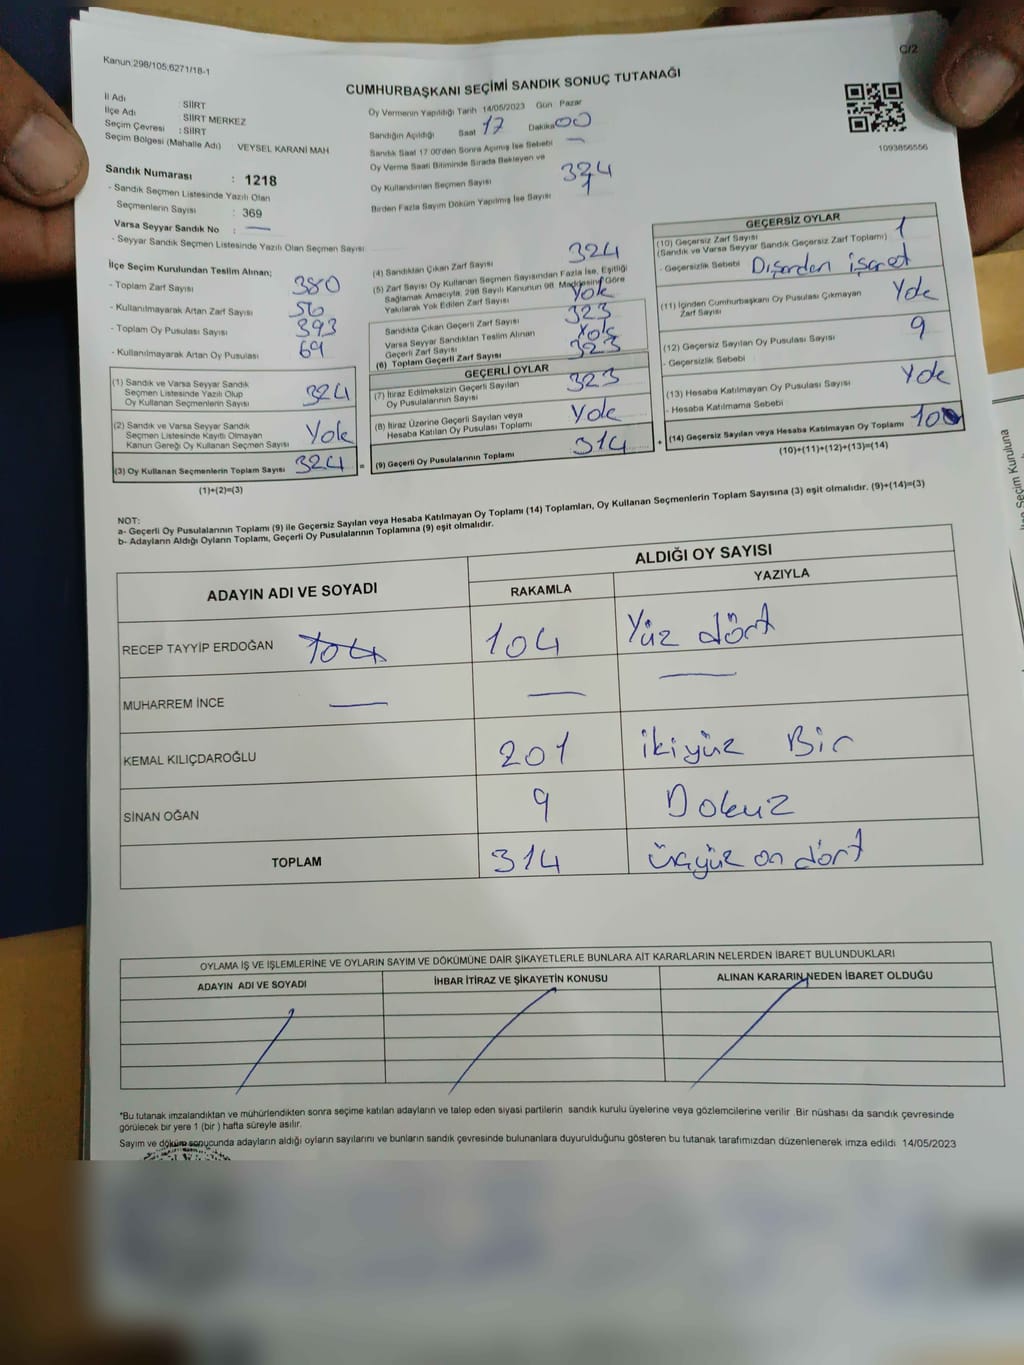 Kanun:298/105;6271/18-1
C/2
CUMHURBAŞKANI SEÇİMİ SANDIK SONUÇ TUTANAĞI
İl Adı : SİİRT
İlçe Adı : SİİRT MERKEZ
Seçim Çevresi : SİİRT
Seçim Bölgesi (Mahalle Adı) VEYSEL KARANİ MAH
Oy Vermenin Yapıldığı Tarih 14/05/2023 Gün Pazar
Sandığın Açıldığı Saat 17 Dakika 00
Sandık Saat 17:00'den Sonra Açılmış İse Sebebi —
Oy Verme Saati Bitiminde Sırada Bekleyen ve
Oy Kullandırılan Seçmen Sayısı 324
Birden Fazla Sayım Döküm Yapılmış İse Sayısı 1
1093856556
Sandık Numarası : 1218
- Sandık Seçmen Listesinde Yazılı Olan
Seçmenlerin Sayısı : 369
Varsa Seyyar Sandık No : —
- Seyyar Sandık Seçmen Listesinde Yazılı Olan Seçmen Sayısı
İlçe Seçim Kurulundan Teslim Alınan;
- Toplam Zarf Sayısı 380
- Kullanılmayarak Artan Zarf Sayısı 56
- Toplam Oy Pusulası Sayısı 393
- Kullanılmayarak Artan Oy Pusulası 69
(1) Sandık ve Varsa Seyyar Sandık
Seçmen Listesinde Yazılı Olup
Oy Kullanan Seçmenlerin Sayısı 324
(2) Sandık ve Varsa Seyyar Sandık
Seçmen Listesinde Kayıtlı Olmayan
Kanun Gereği Oy Kullanan Seçmen Sayısı Yok
(3) Oy Kullanan Seçmenlerin Toplam Sayısı 324 =
(1)+(2)=(3)
(4) Sandıktan Çıkan Zarf Sayısı 324
(5) Zarf Sayısı Oy Kullanan Seçmen Sayısından Fazla İse, Eşitliği
Sağlamak Amacıyla, 298 Sayılı Kanunun 98. Maddesine Göre
Yakılarak Yok Edilen Zarf Sayısı Yok
Sandıkta Çıkan Geçerli Zarf Sayısı 323
Varsa Seyyar Sandıktan Teslim Alınan
Geçerli Zarf Sayısı Yok
(6) Toplam Geçerli Zarf Sayısı 323
GEÇERLİ OYLAR
(7) İtiraz Edilmeksizin Geçerli Sayılan
Oy Pusulalarının Sayısı 323
(8) İtiraz Üzerine Geçerli Sayılan veya
Hesaba Katılan Oy Pusulası Toplamı Yok
(9) Geçerli Oy Pusulalarının Toplamı 314 +
GEÇERSİZ OYLAR
(10) Geçersiz Zarf Sayısı 1
(Sandık ve Varsa Seyyar Sandık Geçersiz Zarf Toplamı)
- Geçersizlik Sebebi Dışardan işaret
(11) İçinden Cumhurbaşkanı Oy Pusulası Çıkmayan
Zarf Sayısı Yok
(12) Geçersiz Sayılan Oy Pusulası Sayısı 9
- Geçersizlik Sebebi
(13) Hesaba Katılmayan Oy Pusulası Sayısı Yok
- Hesaba Katılmama Sebebi
(14) Geçersiz Sayılan veya Hesaba Katılmayan Oy Toplamı 10
(10)+(11)+(12)+(13)=(14)
NOT:
a- Geçerli Oy Pusulalarının Toplamı (9) ile Geçersiz Sayılan veya Hesaba Katılmayan Oy Toplamı (14) Toplamları, Oy Kullanan Seçmenlerin Toplam Sayısına (3) eşit olmalıdır. (9)+(14)=(3)
b- Adayların Aldığı Oyların Toplamı, Geçerli Oy Pusulalarının Toplamına (9) eşit olmalıdır.
ADAYIN ADI VE SOYADI
ALDIĞI OY SAYISI
RAKAMLA YAZIYLA
RECEP TAYYİP ERDOĞAN 104 104 Yüz dört
MUHARREM İNCE — — —
KEMAL KILIÇDAROĞLU 201 ikiyüz Bir
SİNAN OĞAN 9 Dokuz
TOPLAM 314 üçyüz on dört
OYLAMA İŞ VE İŞLEMLERİNE VE OYLARIN SAYIM VE DÖKÜMÜNE DAİR ŞİKAYETLERLE BUNLARA AİT KARARLARIN NELERDEN İBARET BULUNDUKLARI
ADAYIN ADI VE SOYADI İHBAR İTİRAZ VE ŞİKAYETİN KONUSU ALINAN KARARIN NEDEN İBARET OLDUĞU
*Bu tutanak imzalandıktan ve mühürlendikten sonra seçime katılan adayların ve talep eden siyasi partilerin sandık kurulu üyelerine veya gözlemcilerine verilir .Bir nüshası da sandık çevresinde
görülecek bir yere 1 (bir ) hafta süreyle asılır.
Sayım ve döküm sonucunda adayların aldığı oyların sayılarını ve bunların sandık çevresinde bulunanlara duyurulduğunu gösteren bu tutanak tarafımızdan düzenlenerek imza edildi 14/05/2023
Seçim Kuruluna